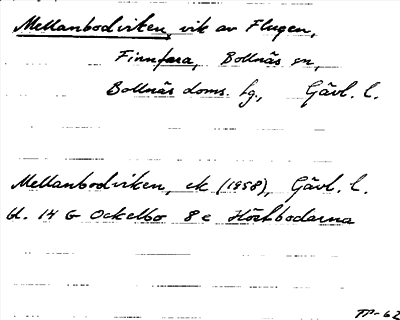 Mellanbodviken, vik av Flugen,
Finnfara, Bollnäs sn,
Bollnäs doms. tg, Gävl. l.
Mellanbodviken, ek (1958), Gävl. l.
bl. 14 G Ockelbo 8 e Höstbodarna
TP-62